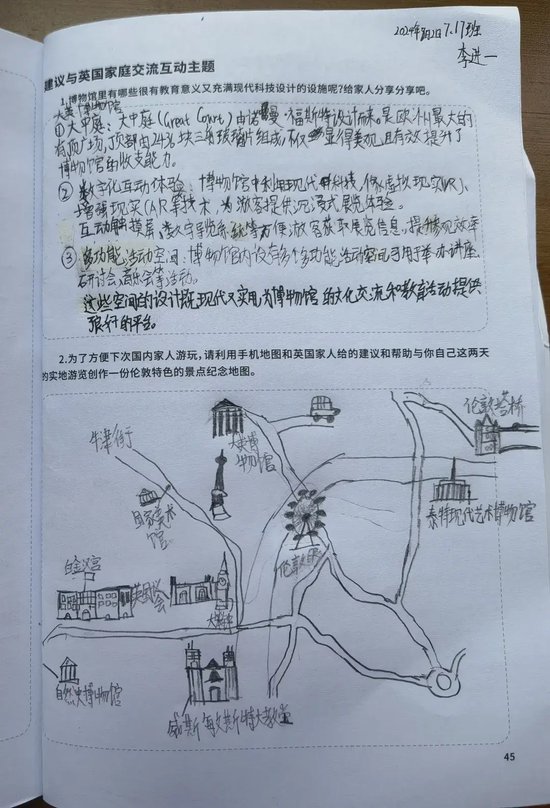 2024年 7.17班
李进一
建议与英国家庭交流互动主题
1.博物馆里有哪些很有教育意义又充满现代科技设计的设施呢?给家人分享分享吧。
大英博物馆
①大中庭：大中庭(Great Court)由诺曼·福斯特设计而来。是欧州最大的
有顶广场，顶部由 块三角玻璃片组成，不仅显得美观，且有效提升了
博物馆的收支能力。
②数字化互动体验：博物馆中利用现代科技，像虚拟现实(VR)、
增强现实(AR)等技术，为游客提供沉浸式展览体验。
互动触摸屏、数字导览系统等方便游客获取展览信息，提升参观效率
③多功能活动空间：博物馆内设有多个多功能活动空间可用于举办讲座、
研讨会、音乐会等活动。
这些空间的设计既现代又实用，为博物馆的文化交流和教育活动提供
旅行的平台。
2.为了方便下次国内家人游玩,请利用手机地图和英国家人给的建议和帮助与你自己这两天
的实地游览创作一份伦敦特色的景点纪念地图。
伦敦塔桥
牛津街
大英博
物馆
国家美术
馆
泰特现代艺术博物馆
伦敦眼
白金汉宫
英国议会
大笨钟
自然史博物馆
威斯敏斯特大教堂
45